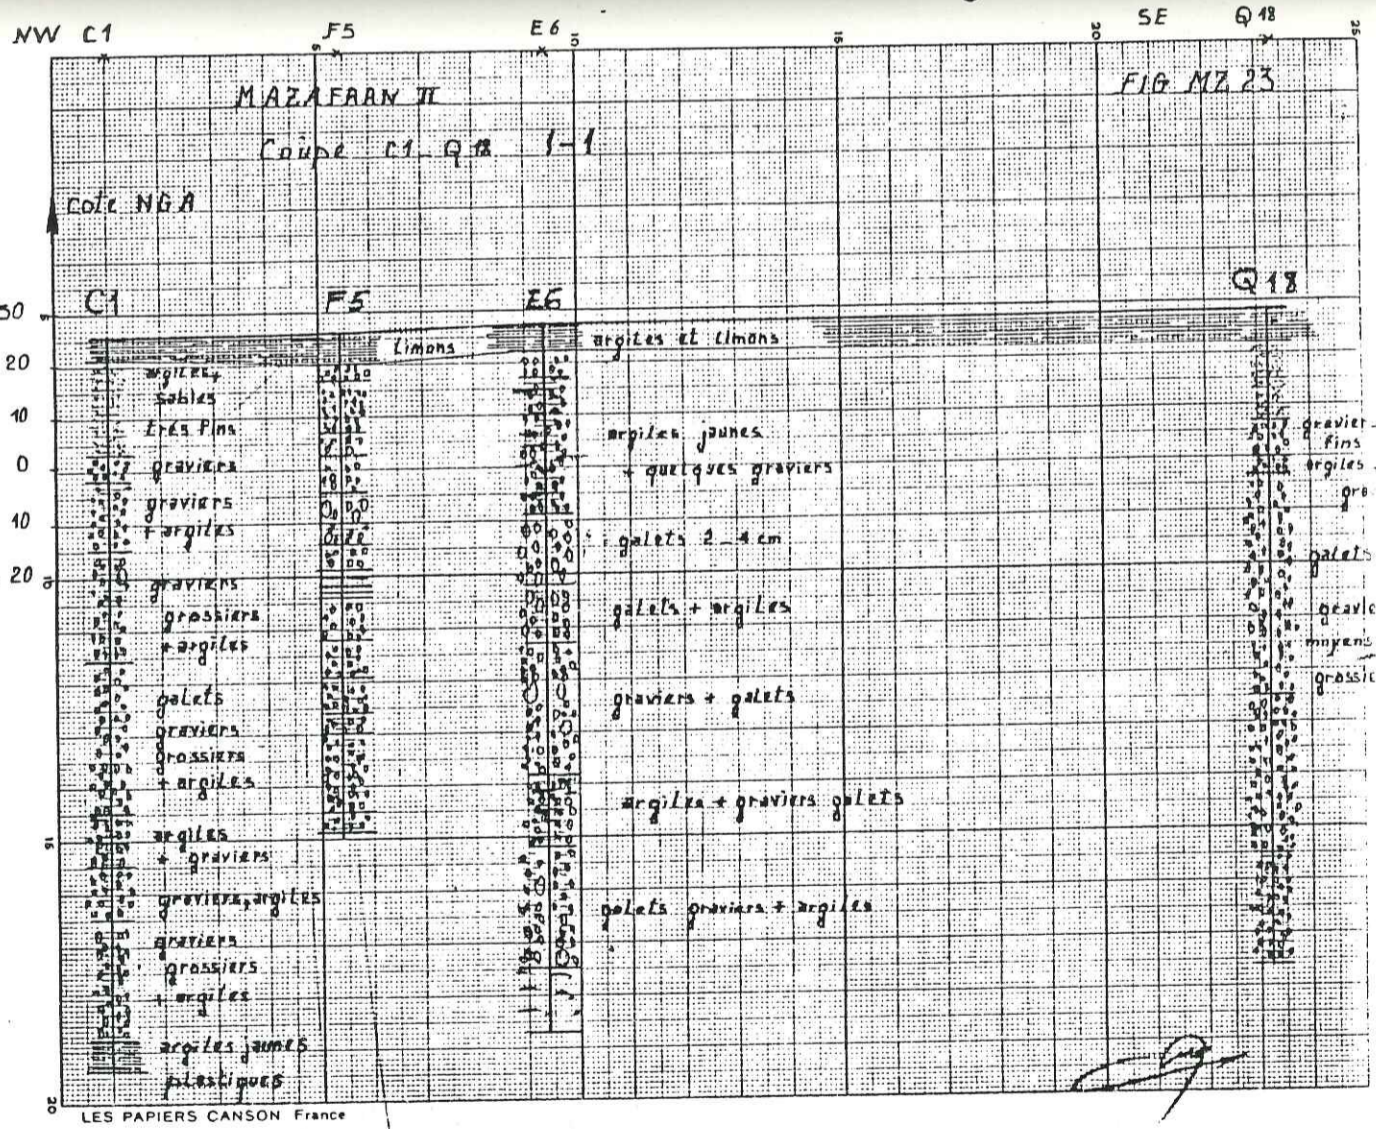 NW C1 F5 E6 SE Q18
5 10 15 20 25
MAZAFRAN II
FIG MZ 23
Coupe C1_Q18 1-1
cote NGA
C1 F5 E6 Q18
limons
argiles et limons
20
10
0
10
20
argiles,
sables
très fins
graviers
graviers
+ argiles
graviers
grossiers
+ argiles
galets
graviers
grossiers
+ argiles
argiles
+ graviers
graviers, argiles
graviers
grossiers
+ argiles
argiles jaunes
plastiques
argiles jaunes
+ quelques graviers
galets 2_4 cm
galets + argiles
graviers + galets
argiles + graviers galets
galets graviers + argiles
gravier
fins
argiles
gra
galets
gravie
moyens
grossie
15
20
LES PAPIERS CANSON France